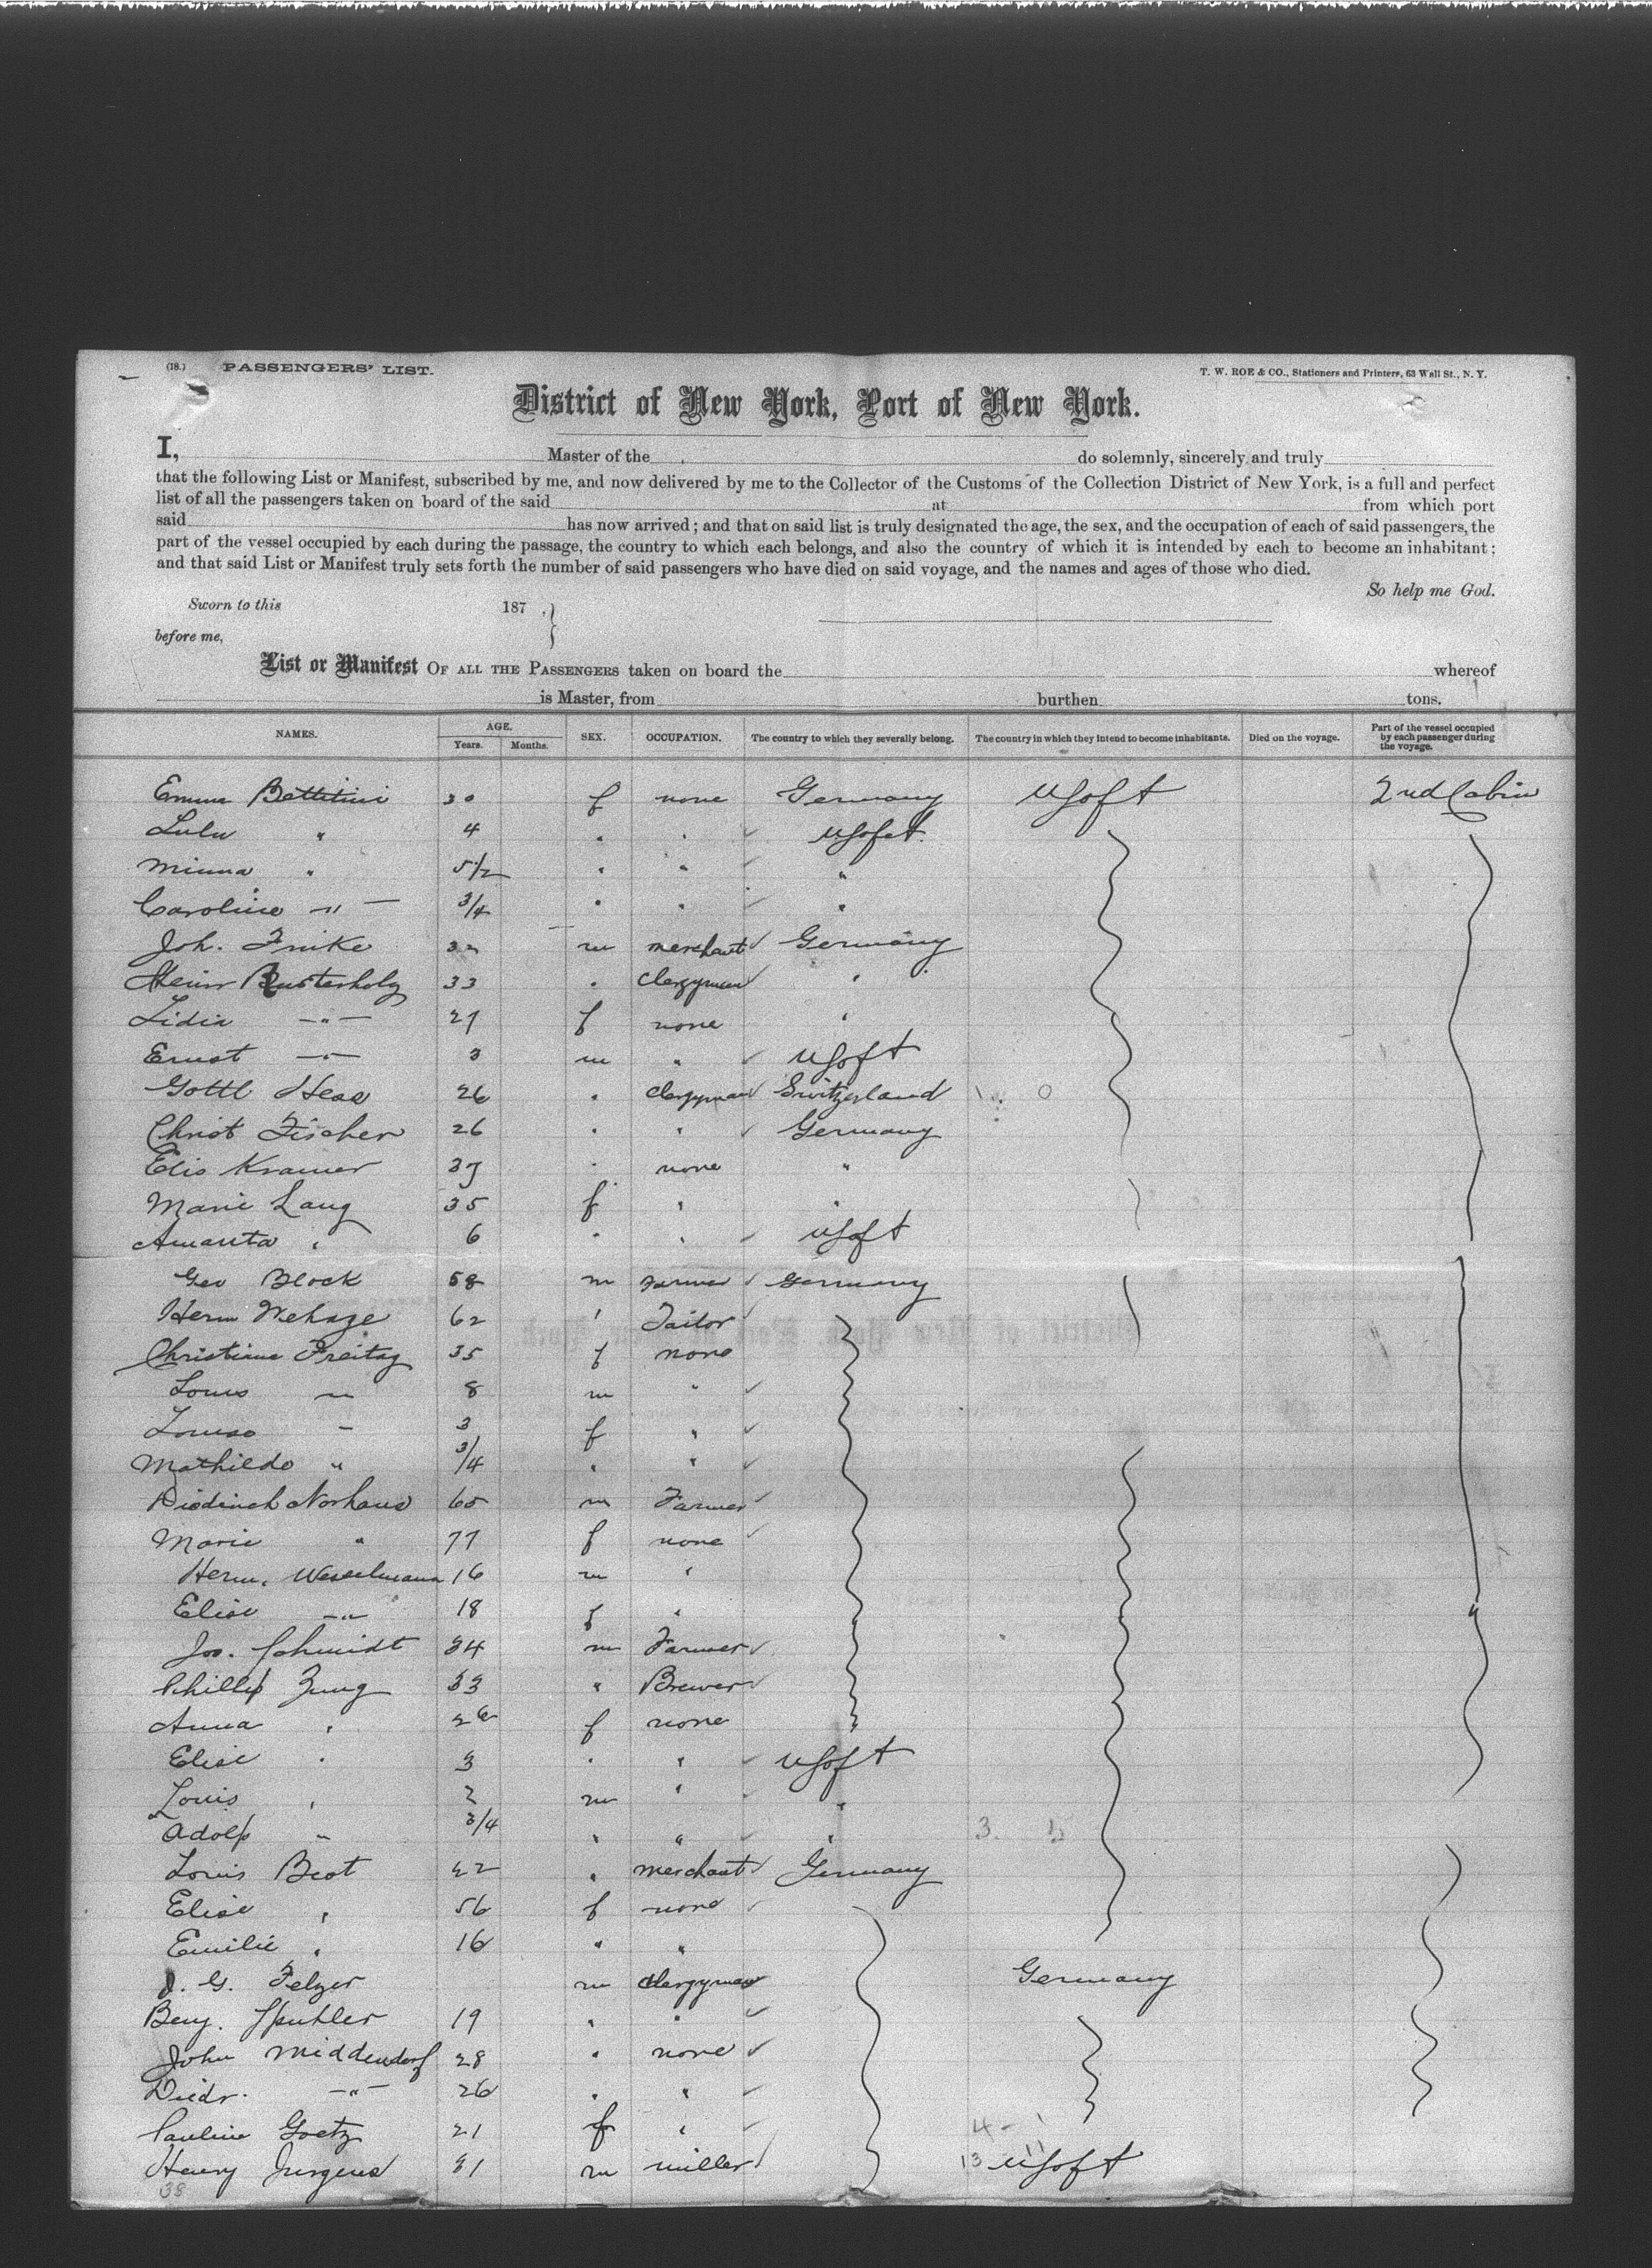 (18.) PASSENGERS' LIST. T. W. ROE & CO., Stationers and Printers, 63 Wall St., N. Y.
District of New York, Port of New York.
I, Master of the do solemnly, sincerely and truly
that the following List or Manifest, subscribed by me, and now delivered by me to the Collector of the Customs of the Collection District of New York, is a full and perfect
list of all the passengers taken on board of the said at from which port
said has now arrived; and that on said list is truly designated the age, the sex, and the occupation of each of said passengers, the
part of the vessel occupied by each during the passage, the country to which each belongs, and also the country of which it is intended by each to become an inhabitant;
and that said List or Manifest truly sets forth the number of said passengers who have died on said voyage, and the names and ages of those who died.
So help me God.
Sworn to this 187
before me,
List or Manifest OF ALL THE PASSENGERS taken on board the whereof
is Master, from burthen tons.
NAMES. AGE. Years. Months. SEX. OCCUPATION. The country to which they severally belong. The country in which they intend to become inhabitants. Died on the voyage. Part of the vessel occupied by each passenger during the voyage.
Emma Bettitini 30 f none Germany USofA 2nd Cabin
Lulu " 4 " " USofA
Minna " 5 1/2 " " "
Caroline " 3/4 " " "
Joh. Finike 32 m merchant Germany
Heinr 33 " Clergyman "
Lidia " 27 f none "
Ernst " 3 m " USofA
Gottl Hess 26 " Clergyman Switzerland
Christ Fischer 26 " " Germany
Elis Kramer 37 " none "
Marie Lang 35 f " "
Amanta " 6 " " USofA
Geo Block 58 m Farmer Germany
Herm Wehage 62 " Tailor
Christiane Freitag 35 f none
Louis " 8 m "
Louise " 3 f "
Mathilde " 3/4 " "
Diedrich Norhaus 60 m Farmer
Marie " 77 f none
Herm. Wesselmann 16 m "
Elise " 18 f "
Jos. Schmidt 34 m Farmer
Phillip Jung 33 " Brewer
Anna " 26 f none
Elise " 3 " " USofA
Louis " 2 m " "
Adolf " 3/4 " " "
Louis Best 22 " merchant Germany
Elise " 56 f none
Emilie " 16 " "
J. G. Felzer m Clergyman Germany
Benj. Spuhler 19 " "
John Middendorf 28 " none
Diedr. " 26 " "
Pauline Goetz 21 f "
Henry Jurgens 31 m miller USofA
38